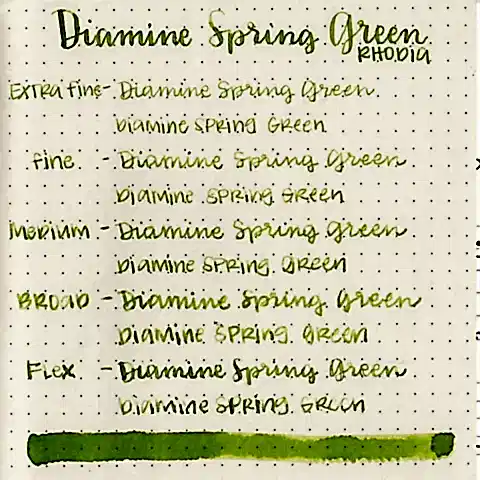 Diamine Spring Green
RHODIA
EXTRA fine - Diamine Spring Green
DIAMINE SPRING GREEN
fine - Diamine Spring Green
DIAMINE SPRING GREEN
MEDIUM - Diamine Spring Green
DIAMINE SPRING GREEN
BROAD - Diamine Spring Green
DIAMINE SPRING GREEN
FLEX - Diamine Spring Green
DIAMINE SPRING GREEN